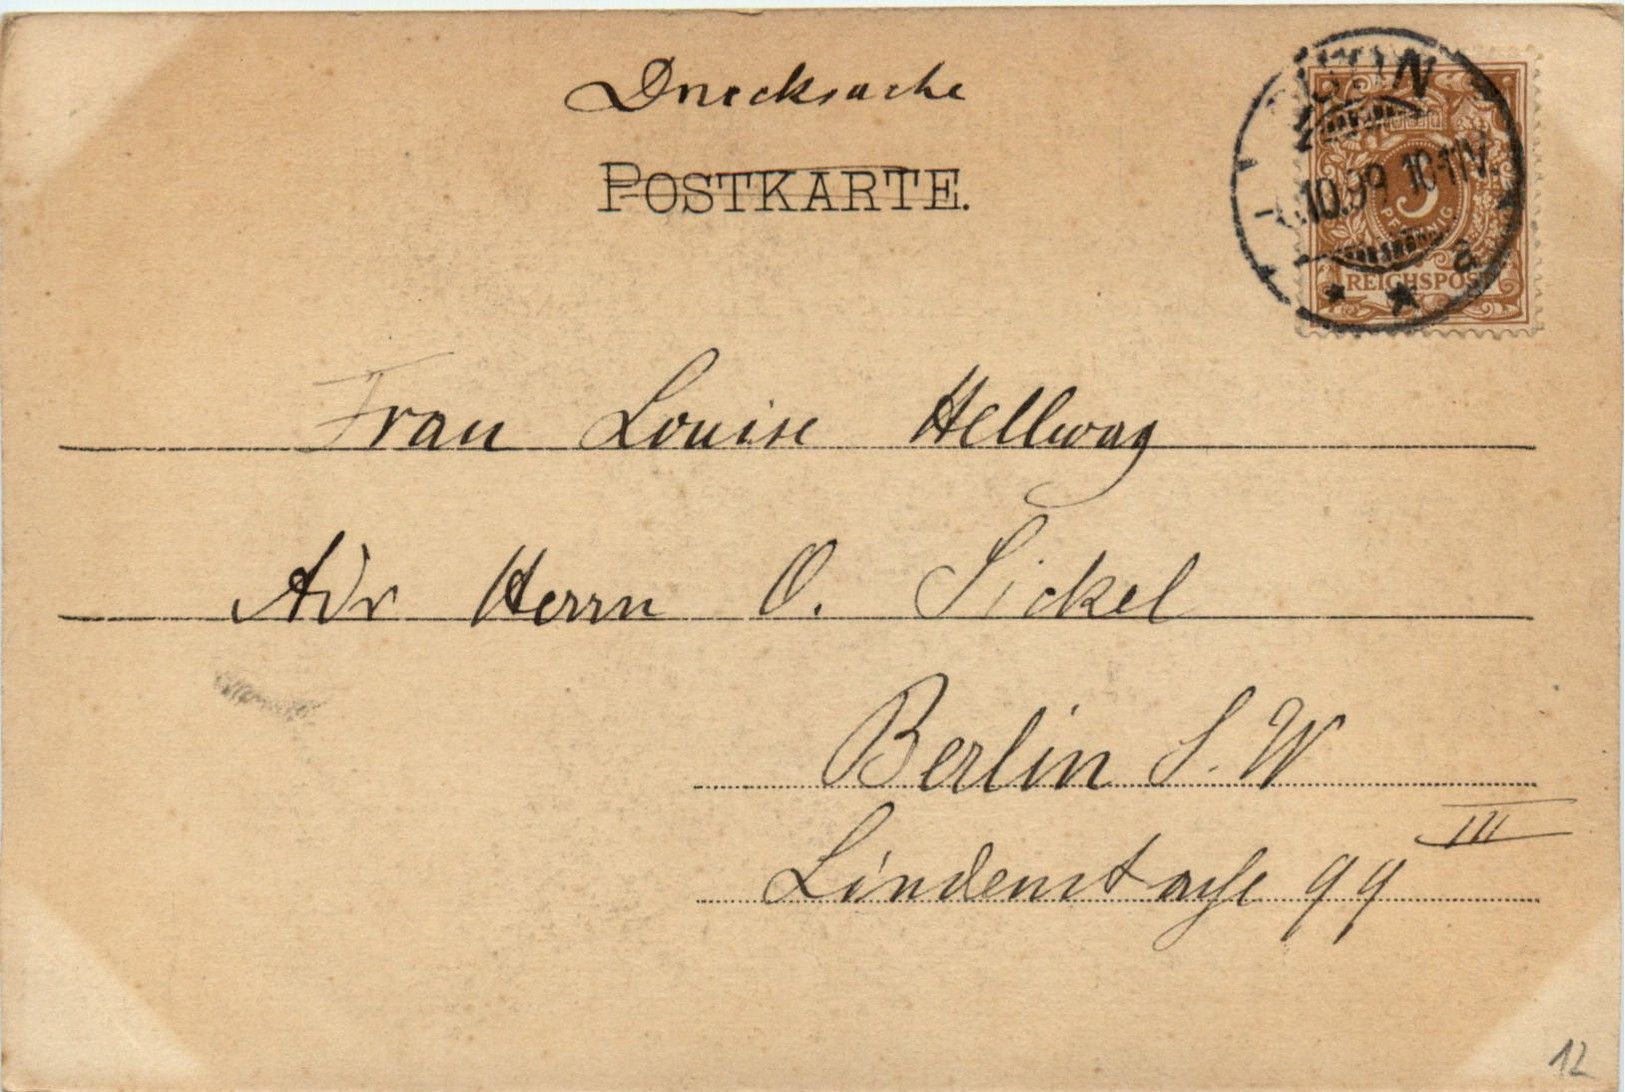 Drucksache
POSTKARTE.
10.99 10-11V.
a
3
PFENNIG
REICHSPOST
Frau Louise Hellwag
Adr Herrn O. Sickel
Berlin S. W
Lindenstraße 99 III
12